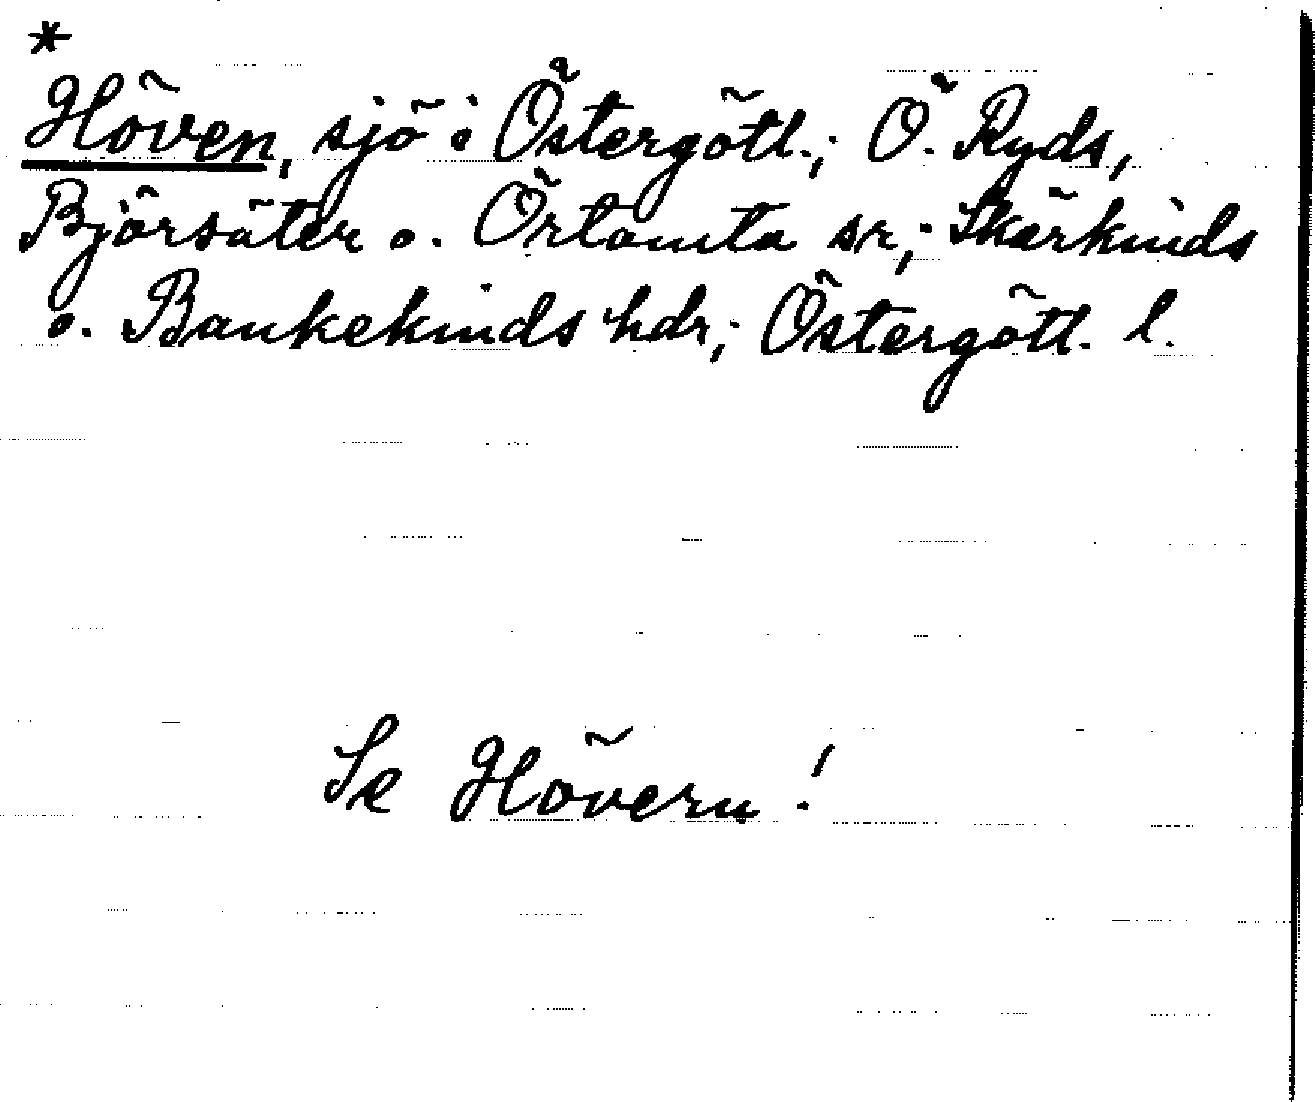 *
Höven, sjö i Östergötl.; Ö. Ryds,
Björsäter o. Örtomta sr; Skärkinds
o. Bankekinds hdr; Östergötl. l.
Se Hövern!